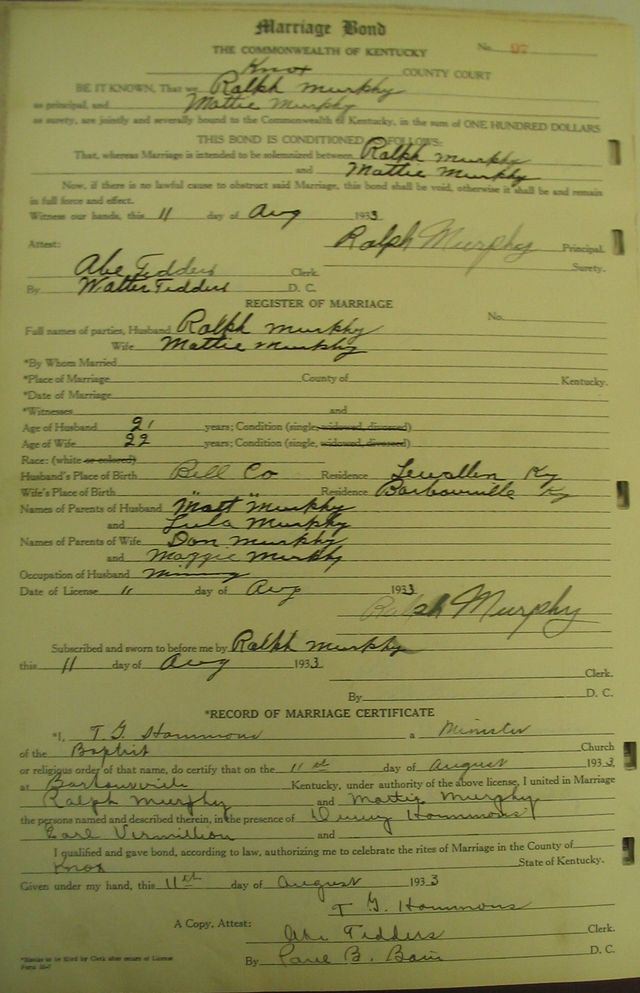 Marriage Bond
THE COMMONWEALTH OF KENTUCKY No. 97
Knox COUNTY COURT
BE IT KNOWN, That we Ralph Murphy
as principal, and Mattie Murphy
as surety, are jointly and severally bound to the Commonwealth of Kentucky, in the sum of ONE HUNDRED DOLLARS
THIS BOND IS CONDITIONED AS FOLLOWS:
That, whereas Marriage is intended to be solemnized between Ralph Murphy
and Mattie Murphy
Now, if there is no lawful cause to obstruct said Marriage, this bond shall be void, otherwise it shall be and remain
in full force and effect.
Witness our hands, this 11 day of Aug 1933
Ralph Murphy Principal.
Attest: Surety.
Abe Tedders Clerk.
By Walter Tedders D. C.
REGISTER OF MARRIAGE
Full names of parties, Husband Ralph Murphy No.
Wife Mattie Murphy
*By Whom Married
*Place of Marriage County of Kentucky.
*Date of Marriage
*Witnesses and
Age of Husband 21 years; Condition (single, widowed, divorced)
Age of Wife 22 years; Condition (single, widowed, divorced)
Race: (white or colored)
Husband's Place of Birth Bell Co Residence Lewallen Ky
Wife's Place of Birth " " Residence Barbourville Ky
Names of Parents of Husband Matt Murphy
and Lula Murphy
Names of Parents of Wife Don Murphy
and Maggie Murphy
Occupation of Husband Mining
Date of License 11 day of Aug 1933
Ralph Murphy
Subscribed and sworn to before me by Ralph Murphy
this 11 day of Aug 1933
Clerk.
By D. C.
*RECORD OF MARRIAGE CERTIFICATE
*I, T. G. Hammons a Minister
of the Baptist Church
or religious order of that name, do certify that on the 11 day of August 1933
at Barbourville Kentucky, under authority of the above license, I united in Marriage
Ralph Murphy and Mattie Murphy
the persons named and described therein, in the presence of Hammons
Earl Vermillion and
I qualified and gave bond, according to law, authorizing me to celebrate the rites of Marriage in the County of
Knox State of Kentucky.
Given under my hand, this 11 day of August 1933
T. G. Hammons
A Copy, Attest: Abe Tedders Clerk.
By B. D. C.